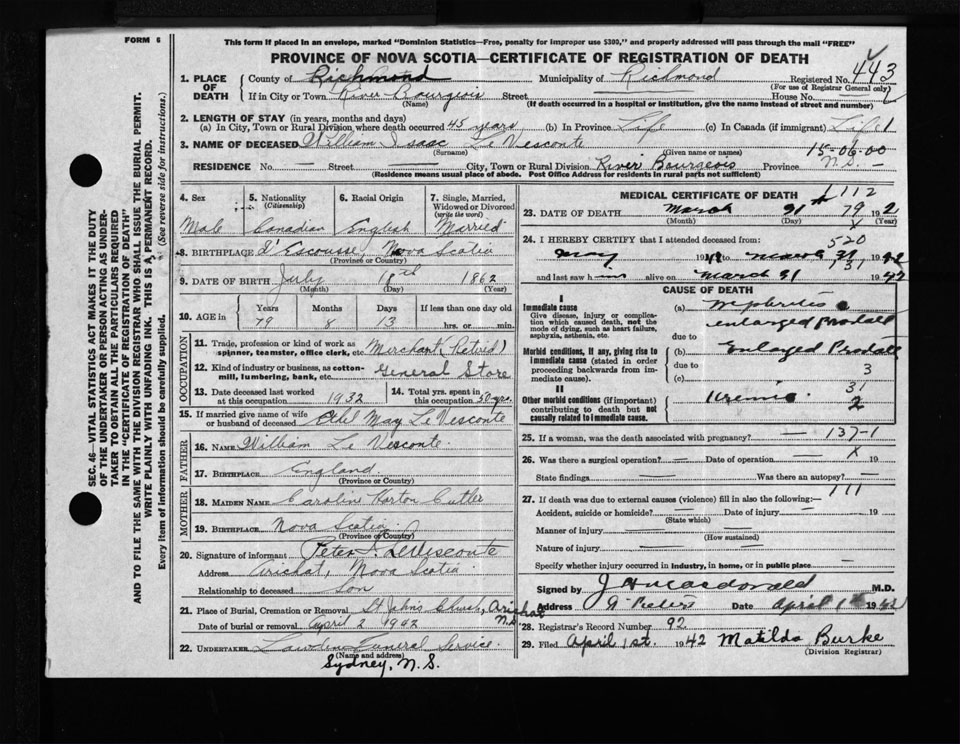 FORM 6
This form if placed in an envelope, marked "Dominion Statistics—Free, penalty for improper use $300," and properly addressed will pass through the mail "FREE"
PROVINCE OF NOVA SCOTIA—CERTIFICATE OF REGISTRATION OF DEATH
1. PLACE OF DEATH County of Richmond Municipality of Richmond Registered No. 443
(For use of Registrar General only)
If in City or Town River Bourgeois Street House No.
(Name) (If death occurred in a hospital or institution, give the name instead of street and number)
2. LENGTH OF STAY (in years, months and days)
(a) In City, Town or Rural Division where death occurred 45 years (b) In Province Life (c) In Canada (if immigrant) Life 1
3. NAME OF DECEASED William Isaac Le Vesconte 15-06-00
(Surname) (Given name or names)
RESIDENCE No. — Street City, Town or Rural Division River Bourgeois Province N.S. —
(Residence means usual place of abode. Post Office Address for residents in rural parts not sufficient)
4. Sex 5. Nationality (Citizenship) 6. Racial Origin 7. Single, Married, Widowed or Divorced (write the word)
Male Canadian English Married
8. BIRTHPLACE d'Escousse, Nova Scotia
(Province or Country)
9. DATE OF BIRTH July 18th 1862
(Month) (Day) (Year)
10. AGE in Years Months Days If less than one day old
79 8 13 hrs. or min.
OCCUPATION
11. Trade, profession or kind of work as spinner, teamster, office clerk, etc. Merchant (Retired)
12. Kind of industry or business, as cotton-mill, lumbering, bank, etc. General Store
13. Date deceased last worked at this occupation 1932 14. Total yrs. spent in this occupation 50 yrs.
15. If married give name of wife or husband of deceased Ethel May Le Vesconte
FATHER
16. NAME William Le Vesconte
17. BIRTHPLACE England
(Province or Country)
MOTHER
18. MAIDEN NAME Caroline Horton Cutler
19. BIRTHPLACE Nova Scotia
(Province or Country)
20. Signature of informant Peter I. LeVisconte
Address Arichat, Nova Scotia
Relationship to deceased Son
21. Place of Burial, Cremation or Removal St Johns Church, Arichat N.S.
Date of burial or removal April 2 1942
22. UNDERTAKER Funeral Service.
(Name and address)
Sydney, N.S.
MEDICAL CERTIFICATE OF DEATH
1112
23. DATE OF DEATH March 31st 79 1942
(Month) (Day) (Year)
X
24. I HEREBY CERTIFY that I attended deceased from:
520
May 19 to March 31 1942
131
and last saw him alive on March 31 1942
CAUSE OF DEATH
I
Immediate cause (a) Nephritis
Give disease, injury or complication which caused death, not the mode of dying, such as heart failure, asphyxia, asthenia, etc.
enlarged
due to
Morbid conditions, if any, giving rise to immediate cause (stated in order proceeding backwards from immediate cause). (b) Enlarged
due to 3
(c)
II
31
Other morbid conditions (if important) contributing to death but not causally related to immediate cause. Uremia 2
25. If a woman, was the death associated with pregnancy? — 137-1
X
26. Was there a surgical operation? — Date of operation — 19
State findings Was there an autopsy? —
111
27. If death was due to external causes (violence) fill in also the following:—
Accident, suicide or homicide? — Date of injury — 19
(State which)
Manner of injury —
(How sustained)
Nature of injury —
Specify whether injury occurred in industry, in home, or in public place —
Signed by M.D.
Address St Peters Date April 1 1942
28. Registrar's Record Number 92
29. Filed April 1st. 1942 Matilda Burke
(Division Registrar)
SEC. 46—VITAL STATISTICS ACT MAKES IT THE DUTY
OF THE UNDERTAKER OR PERSON ACTING AS UNDER-
TAKER TO OBTAIN ALL THE PARTICULARS REQUIRED
IN THE "CERTIFICATE OF REGISTRATION OF DEATH"
AND TO FILE THE SAME WITH THE DIVISION REGISTRAR WHO SHALL ISSUE THE BURIAL PERMIT.
WRITE PLAINLY WITH UNFADING INK. THIS IS A PERMANENT RECORD.
Every item of information should be carefully supplied. (See reverse side for instructions.)